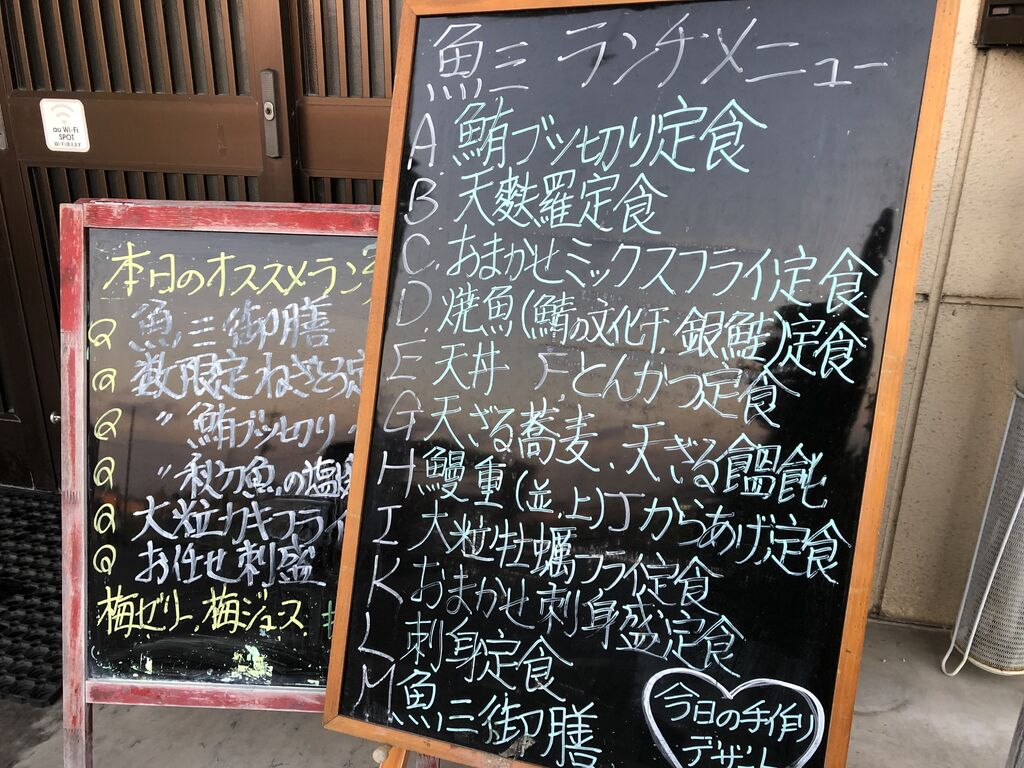 魚三 ランチメニュー
A. 鮪ブツ切り定食
B. 天麩羅定食
C. おまかせミックスフライ定食
D. 焼魚(鯖の文化干, 銀鮭)定食
E. 天丼 F. とんかつ定食
G. 天ざる蕎麦、天ざる饂飩
H. 鰻重(並,上) J からあげ定食
I. 大粒牡蠣フライ定食
K おまかせ刺身盛定食
L 刺身定食
M 魚三御膳
今日の手作り
デザート
本日のオススメラン
魚三御膳
数限定ねぎとろ定
〃 鮪ブツ切り 〃
〃 秋刀魚の塩
大粒カキフライ
お任せ刺盛
梅ゼリー、梅ジュース
au Wi-Fi
SPOT